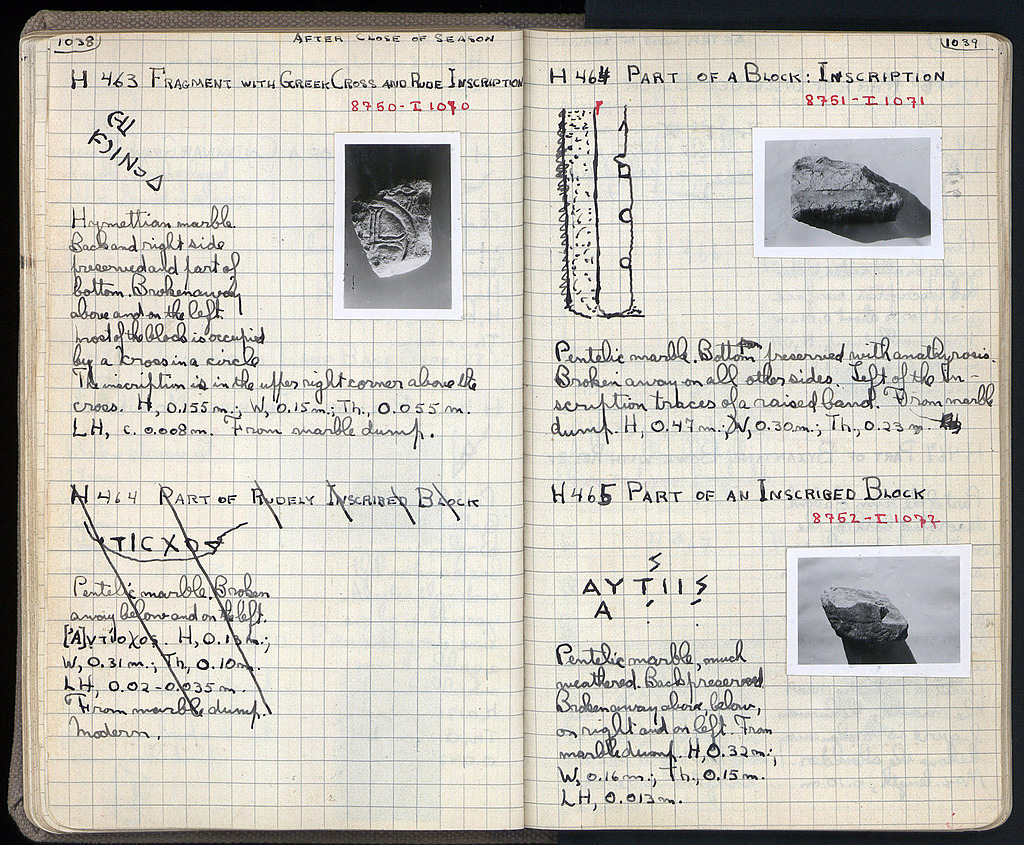 1038
AFTER CLOSE OF SEASON
H 463 FRAGMENT WITH GREEK CROSS AND RUDE INSCRIPTION
8750-I 1070
Hymettian marble.
Back and right side
preserved and part of
bottom. Broken away
above and on the left
most of the block is occupied
by a cross in a circle
The inscription is in the upper right corner above the
cross. H, 0.155 m.; W, 0.15 m.; Th., 0.055 m.
LH, c. 0.008 m. From marble dump.
H 464 PART OF RUDELY INSCRIBED BLOCK
ΤΙCΧΟS
Pentelic marble. Broken
away below and on the left.
[Ἀ]ντίοχος. H, 0.13 m.;
W, 0.31 m.; Th., 0.10 m.
LH, 0.02-0.035 m.
From marble dump.
Modern.
1039
H 464 PART OF A BLOCK: INSCRIPTION
8751-I 1071
Pentelic marble. Bottom preserved with anathyrosis.
Broken away on all other sides. Left of the In-
scription traces of a raised band. From marble
dump. H, 0.47 m.; W, 0.30 m.; Th., 0.23 m.
H 465 PART OF AN INSCRIBED BLOCK
8752-I 1072
ΑΥΤΙΙ
Α
Pentelic marble, much
weathered. Back preserved
Broken away above, below,
on right and on left. From
marble dump. H, 0.32 m;
W, 0.16 m.; Th., 0.15 m.
LH, 0.013 m.